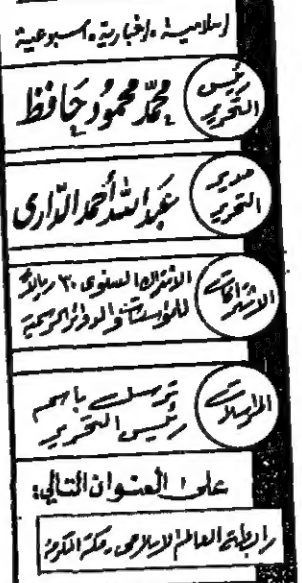 إسلامية. إخبارية. أسبوعية
رئيس
التحرير
محمد محمود حافظ
مدير
التحرير
عبدالله أحمد الدارى
الاشتراكات
الاشتراك السنوى ٣٠ ريالاً
للمؤسسات والدوائر الرسمية
المراسلات
ترسل باسم
رئيس التحرير
على العنوان التالى:
رابطة العالم الإسلامى . مكة المكرمة